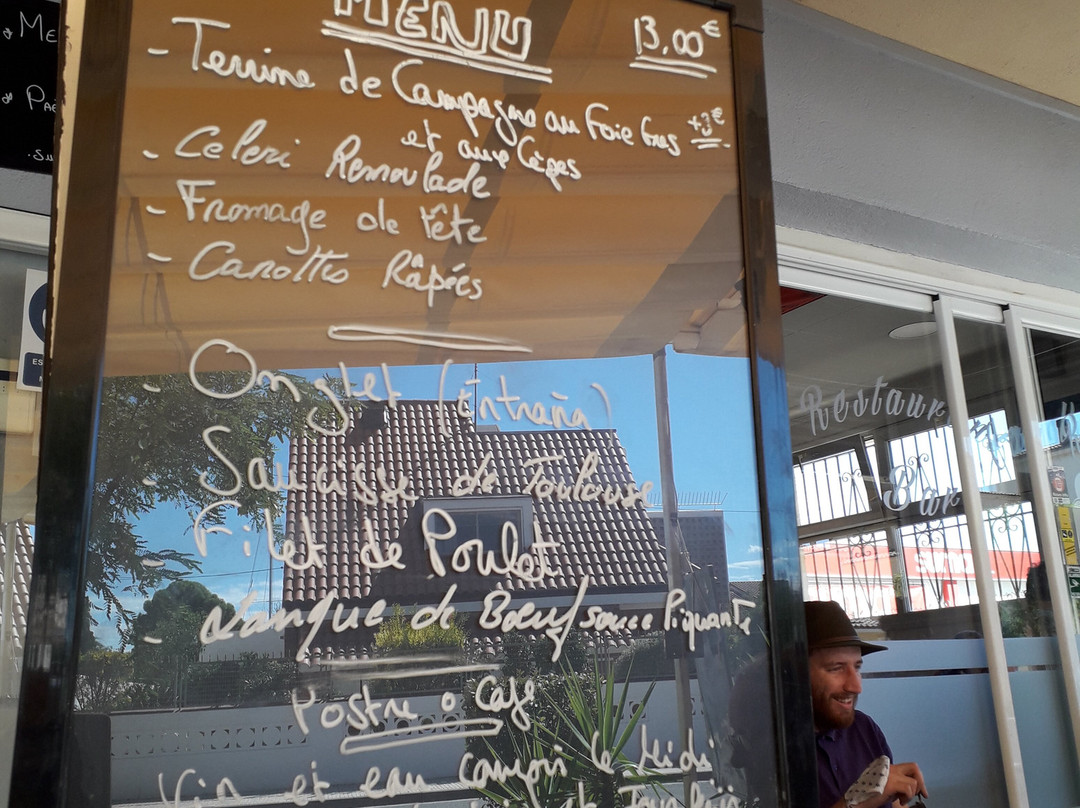 MENU 13,00€
- Terrine de Campagne au Foie Gras +3€
et aux Cèpes
- Celeri Remoulade
- Fromage de tête
- Carottes Râpées
- Onglet (Entraña)
- Saucisse de Toulouse
- Filet de Poulet
- Langue de Bœuf sauce Piquante
Postre o Café
Vin et eau compris le Midi
Restaur
Bar